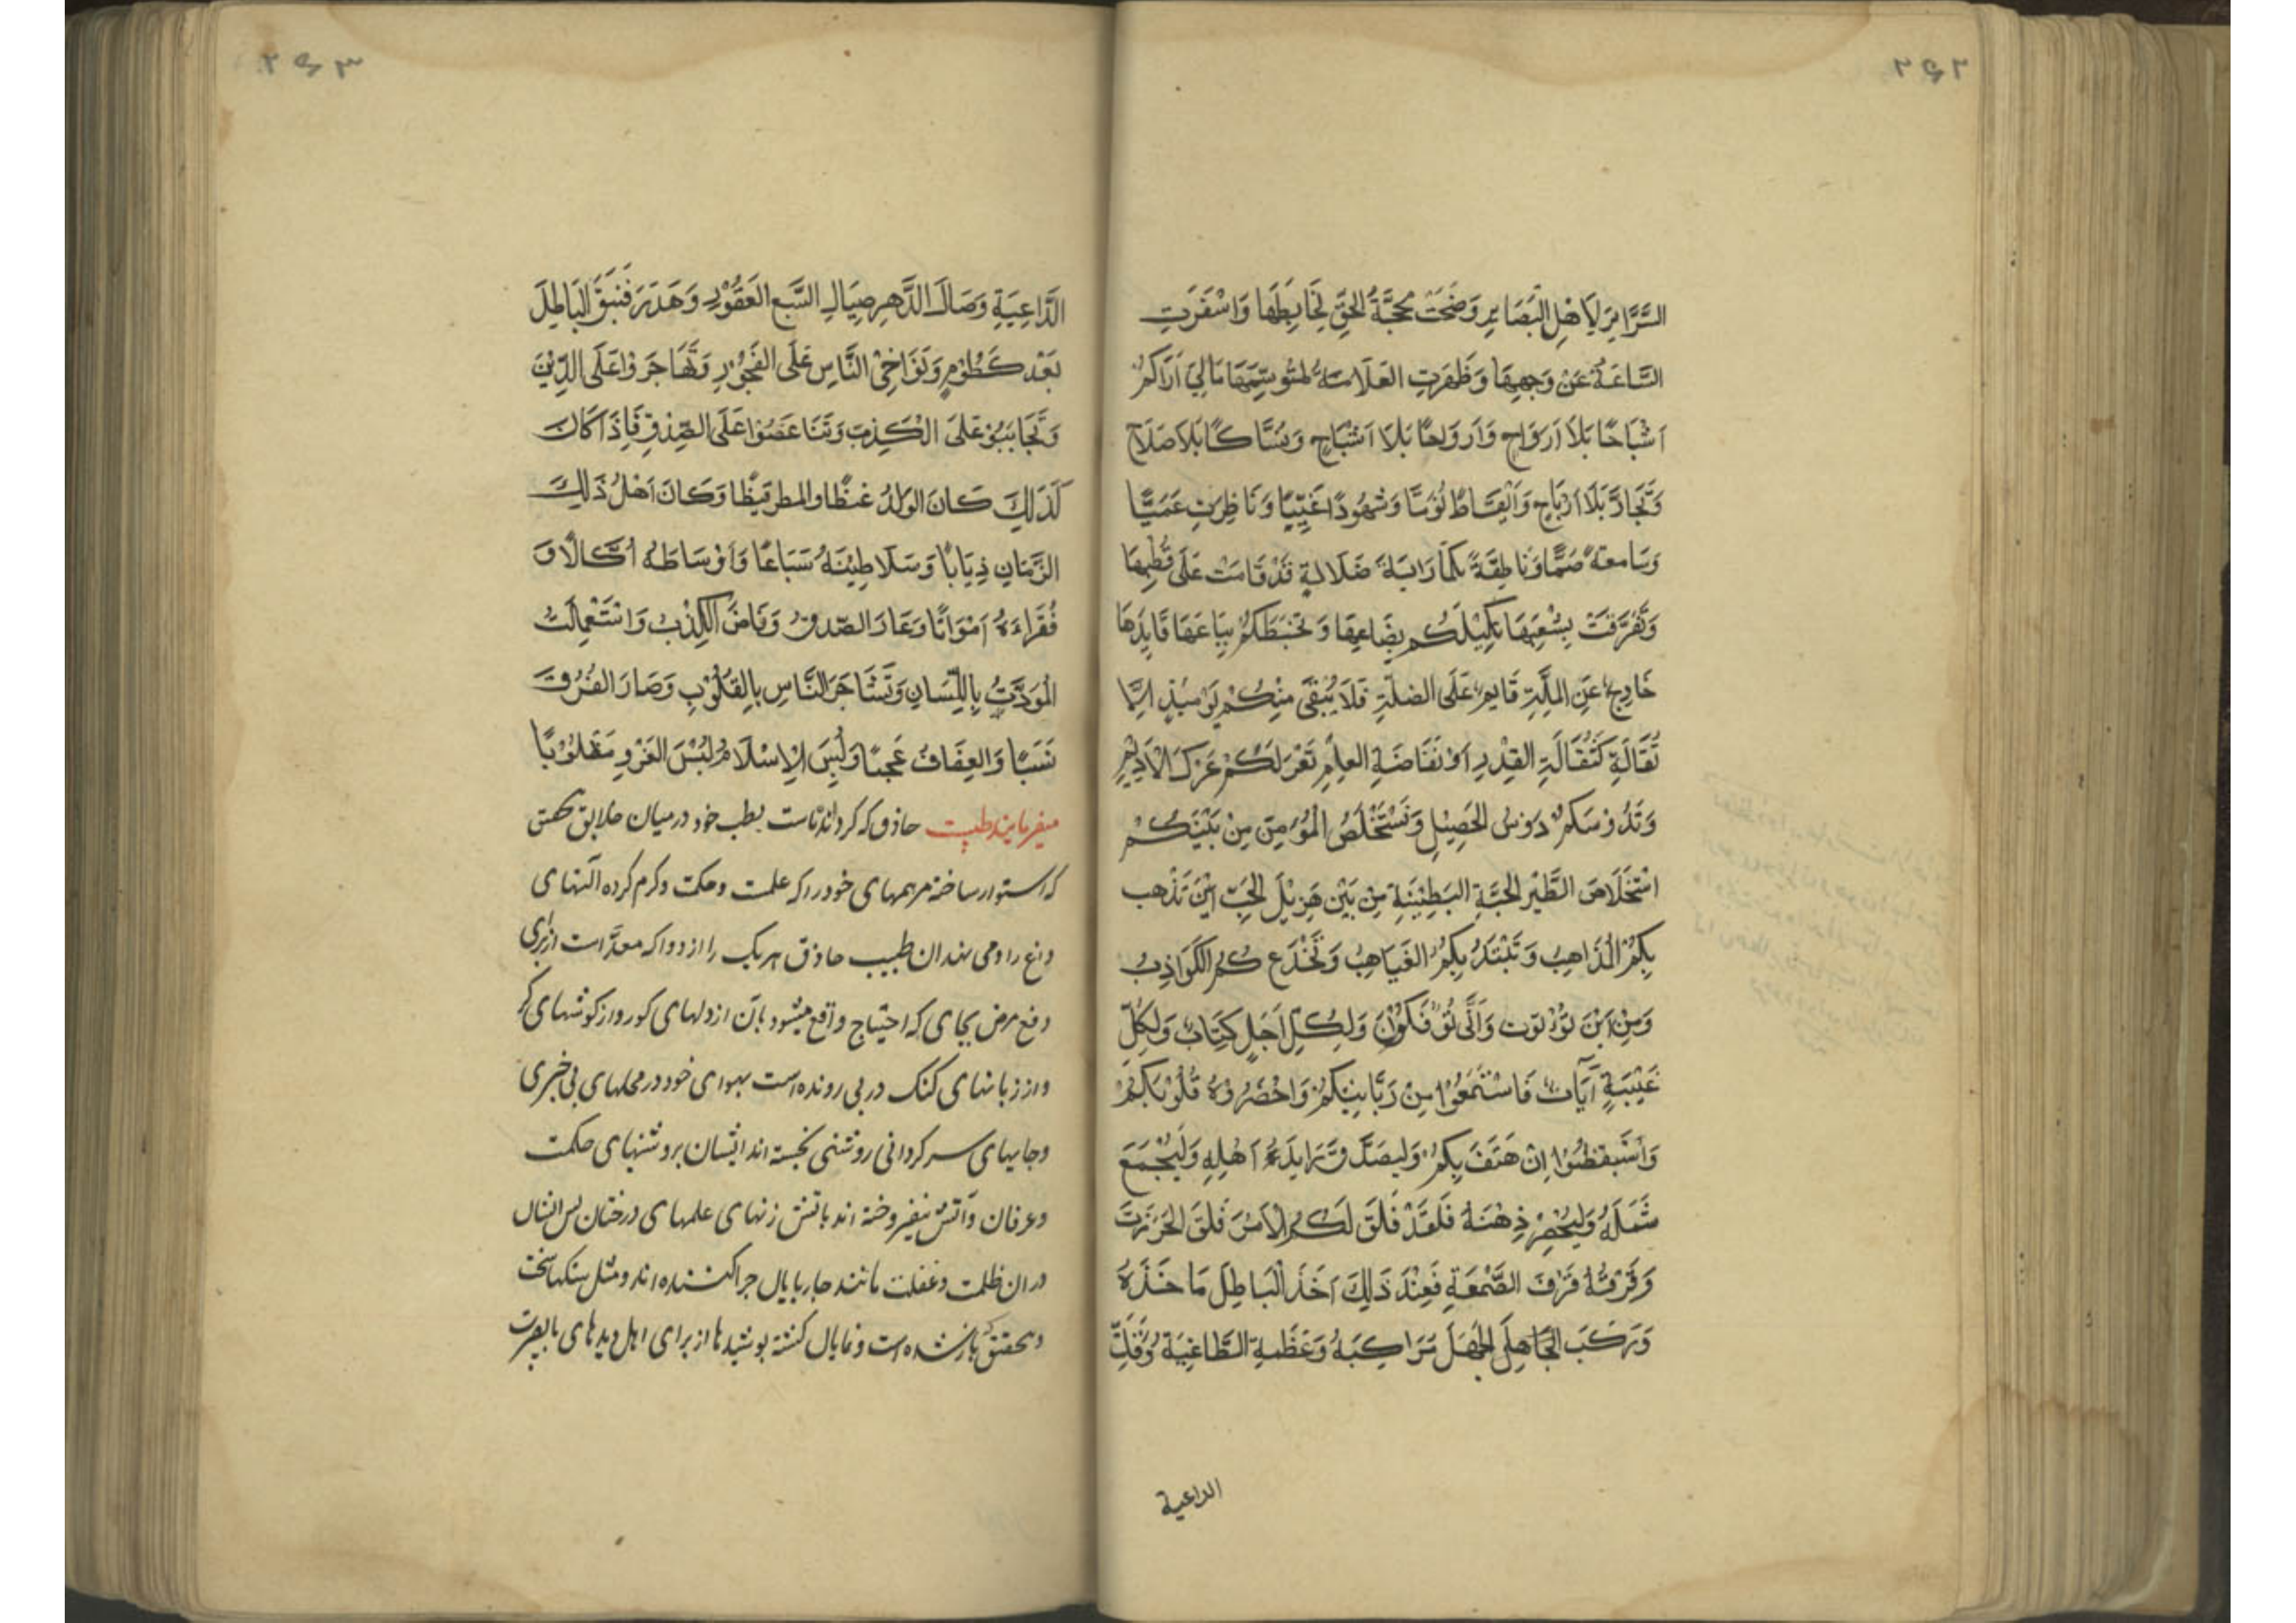 ۲۶۲
السَّرَائِرَ لِاَهْلِ الْبَصَایِرِ وَضَحَتْ مَحَجَّةُ الحَقِّ لِخَابِطِهَا وَاَسْفَرَتِ
السَّاعَةُ عَنْ وَجهِهَا وَظَهَرَتِ العَلَامَةُ لمتُوسِّمِهَا مَالِیَ اَرَاکُمْ
اَشْبَاحًا بَلَا اَرْوَاحٍ وَاَروَاحًا بَلَا اَشْبَاحٍ وَنسَّاکًا بَلَا صَلَاحٍ
وَتُجَّارًا بَلَا اَرْبَاحٍ وَاَیْقَاظًا نُوَّمًا وَشُهُودًا غَیَّبًا وَنَاظِرَتٍ عَمَیًّا
وَسَامعةً صُمَّا وَنَاطِقَةً بَکمَا رَایَةَ ضَلَالةٍ قَدْ قَامَتْ عَلَی قُطْبِهَا
وَتَفَرَّقَتْ بِشُعَبِهَا تَکِیْلَکُم بِصَاعِهَا وَتَخْبِطَکُمْ بِبَاعَهَا قَایِدُهَا
خَارِجٌ عَنِ المِلَّةِ قَایِمٌ عَلَی الضلَّةِ فَلَا یُبْقَی مِنْکُمْ یَوْمَئِذٍ اِلَّا
ثُقَالَةِ کَثُقَالَةِ القِدْرِ اَوْ نَفَاضَةِ العِلْمِ تَعْرَلَکُمْ عَرْکَ الْاَدِیْمِ
وَتَدُوْسَکُمْ دَوْسَ الحَصِیْلِ وَتَسْتَخْلَصُ الْمُؤمِنَ مِنْ بَیْنِکُمْ
اسْتِخْلَاصَ الطَّیْرِ الحَبَّةِ البَطِیْنَةِ مِنْ بَیْنِ هَزِیْلَ الحَبِّ اَیْنَ تَذْهَب
بِکُمْ الْمَذَاهِبُ وَتَبْتَدُ بِکُمُ الغَیَاهِبُ وَتَخْدَع کُمُ الکَوَاذِبُ
وَمِنْ اَیْنَ تؤْتوت وَاَنَّی تؤْفَکُوْنَ وَلِکُلِّ اَجَلٍ کِتَابٌ وَلِکُلِّ
غَیْبَةٍ آیَاتٌ فَاسْتَمَعُوْا مِنْ رَبَّانِیِّکُمْ وَاحْضَرُوْهُ قُلُوْبَکُمْ
وَاَسْتَیقظُوْا اِنْ هَتَفَ بِکُمْ وَلیصَدّقْ رَایِدٌ اَهْلِهِ وَلْیَجْمَعَ
شَمْلَهُ وَلِیُحْضِرْ ذِهْنَهُ فَلَقَدْ فَلَقَ لَکُمُ الْاَمْرَ فَلَقَ الخَرَزَتَ
وَقَرْفَهُ قَرْفَ الصَّمْغَةِ فَعِنْدَ ذَالِکَ اَخَذَ الْبَاطِلَ مَا خَذَهُ
وَرَکَبَ الجَاهِلَ الجَهَلَ مَرَاکِبَهُ وَعَظَمةِ الطَّاغِیَةُ وَقَلَتِّ
الداعیة
۲۶۳
الدَّاعِیَةِ وَصَالَ الدَّهرِ صِیَالِ السَّبعِ العَقُوْرِ وَهَدَرَ فَنِیقَ البَاطِلَ
بَعْدَ کَظُوْمٍ وَتَوَاخِیْ النَّاسِ عَلَی الفَجُوْرِ وَتَهَاجَرَ وْاعَلَی الدِّیْنِ
وَتَحَابَبُوْ عَلَی الْکَذِبِ وَتَبَاغَضُوْا عَلَی الصِّدْقِ فَاِذَا کَانَ
کَذَلِکَ کَانَ الوَلدُ غیظًا والمطر قیظًا وَکَانَ اَهْلُ ذَلِکَ
الزَّمَانِ ذِیَابًا وَسَلَاطِیْنَهُ سَبَاعًا وَاَوْسَاطَهُ اُکَّالًا وَ
فُقَرَاءَهُ اَمْوَاتًا وَعَارَ الصّدقُ وَفَاضَ الکِذْبُ وَاسْتَعْمِلَتْ
الْمَوَدَّتُ بِاللِّسَانِ وَتَشَاجَرَ النَّاسِ بِالقلُوْبِ وَصَارَ الفسُوقَ
نَسَبًا وَالعِفَافُ عَجَبًا وَلُبِسَ الْاِسْلَامُ لُبْسَ الفَرْوِ مَقْلُوْبًا
میفرمایند طبیب حاذق که کرداننده است بطب خود در میان خلایق بتحقیق
که استوار ساخته مرهمهای خود را که علمت وحکمت وکرم کرده آلتهای
داغ را ومی نهد ان طبیب حاذق هریک را از دوا که معدّ است از برای
دفع مرض بجای که احتیاج واقع میشود بان از دلهای کور واز کوشهای کر
واز زبانهای کنک در پی رونده است بدوای خود در محلهای بی خبری
وجایهای سر کردانی روشنی نجسته اند ایشان بروشنیهای حکمت
وعرفان واتش نیفروخته اند باتش زنهای علمهای درخشان پس ایشان
در ان ظلمت وغفلت مانند چارپایان چرا کننده اند ومثل سنکها سخت
وبتحقیق باز شده است ونمایان کشته پوشیدها از برای اهل دیدهای بابصیرت